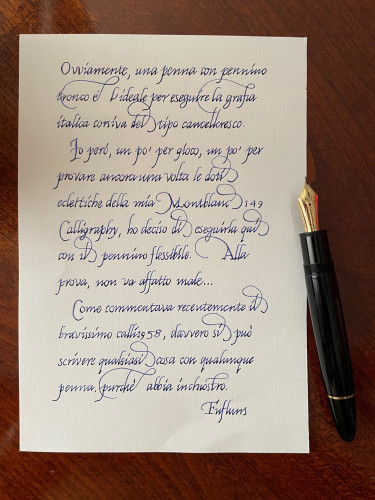 Ovviamente, una penna con pennino
tronco è l'ideale per eseguire la grafia
italica corsiva del tipo cancelleresco.
Io però, un po' per gioco, un po' per
provare ancora una volta le doti
eclettiche della mia Montblanc 149
Calligraphy, ho deciso di eseguirla qui
con il pennino flessibile. Alla
prova, non va affatto male...
Come commentava recentemente il
bravissimo calli1958, davvero si può
scrivere qualsiasi cosa con qualunque
penna, purché abbia inchiostro.
Fufluns